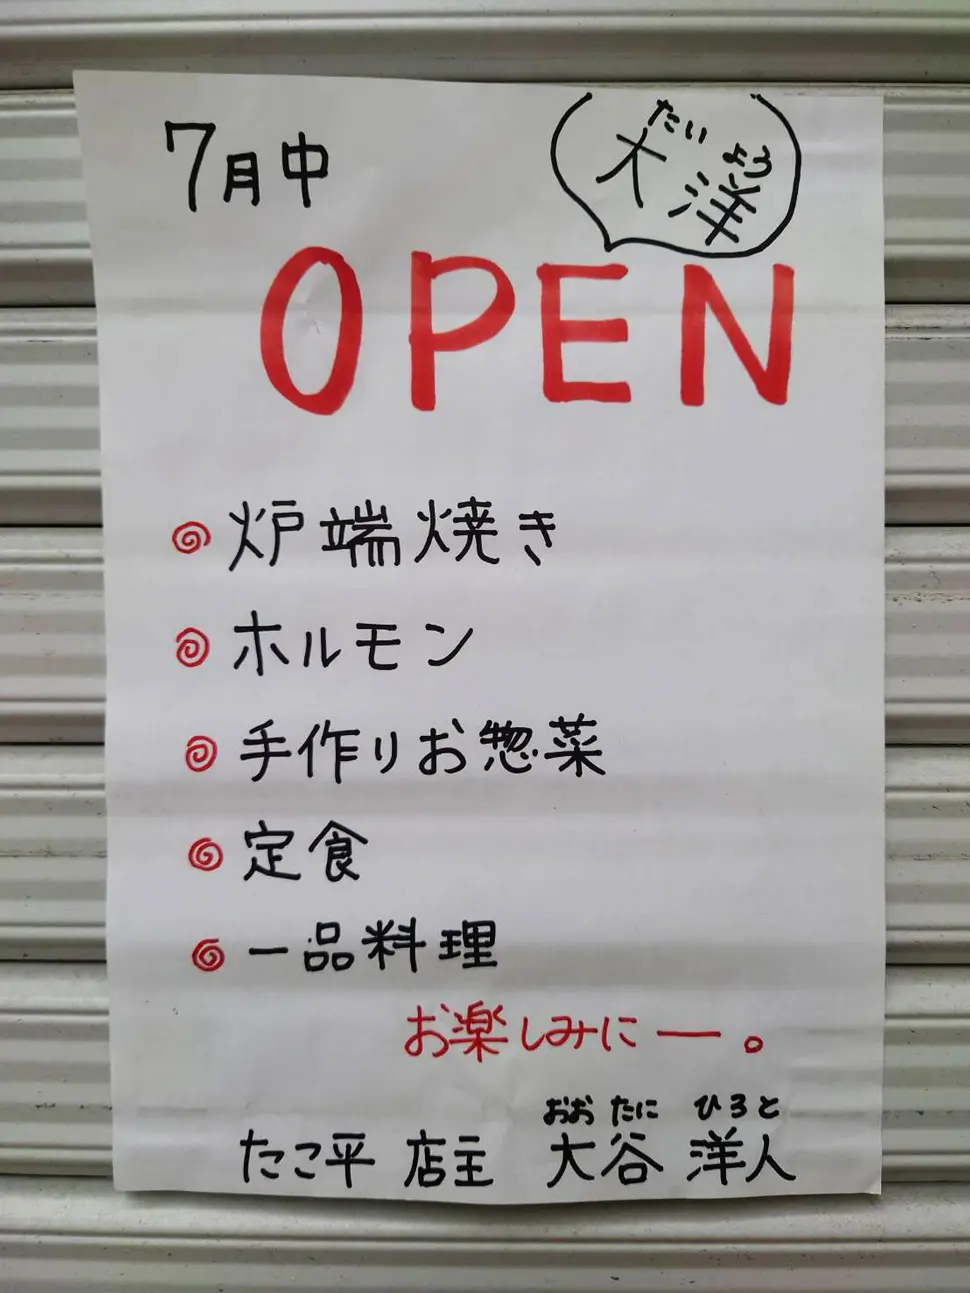 7月中
たい よう
大洋
OPEN
炉端焼き
ホルモン
手作りお惣菜
定食
一品料理
お楽しみにー。
おお たに ひろと
たこ平 店主 大谷 洋人